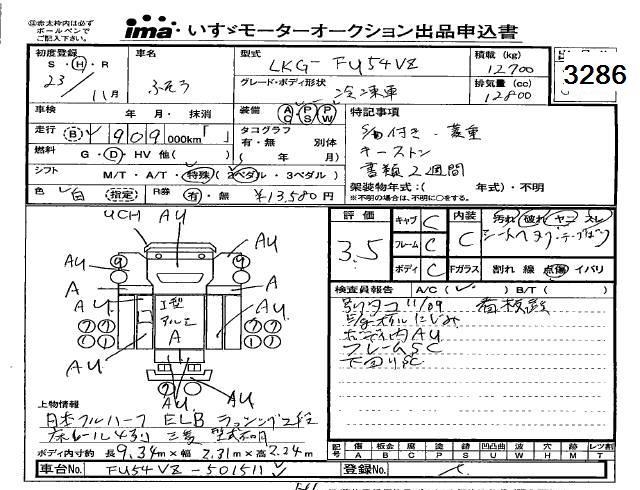 ◎赤太枠内は必ず
ボールペンで
ご記入下さい。
ima・いすゞモーターオークション出品申込書
3286
初度登録
S・H・R
23 / 11月
車名
ふそう
型式
LKG-FU54VZ
積載 (kg)
12700
グレード・ボディ形状
冷凍車
排気量 (cc)
12800
車検 年・月・抹消
装備 AC PS PW
特記事項
走行 B 909,000km
タコグラフ
有・無 別体
( 年 月)
燃料 G・D・HV 他( )
シフト M/T・A/T・特殊(2ペダル・3ペダル)
キーストン
書類2週間
架装物年式:( 年式)・不明
※不明の場合は、不明に○をする。
色 白 指定
R券 有・無 ¥13,580円
評価 3.5
キャブ C
フレーム C
ボディ C
内装 C
汚れ 破れ ヤニ スレ
Fガラス 割れ 線 点傷 イバリ
検査員報告 A/C( ) B/T( )
別タコ 11/09 看板跡
ボディ内AU
フレームSC
下回りSC
UCH AU
AU 9 9 AU
A A
AU I型 アルミ A AU
7 7 7 7
AU AU
AU AU
AU
上物情報
日本フルハーフ ELB ラッシング2段
床レール4列 三菱 型式不明
ボディ内寸約 長9.34m×幅2.31m×高2.24m
記号 傷 A 板金 B 腐 C 塗 P 跡 S 凹凸曲 U 波 W 穴 H 跡 M レツ割 T
車台No. FU54VZ-501511
登録No.